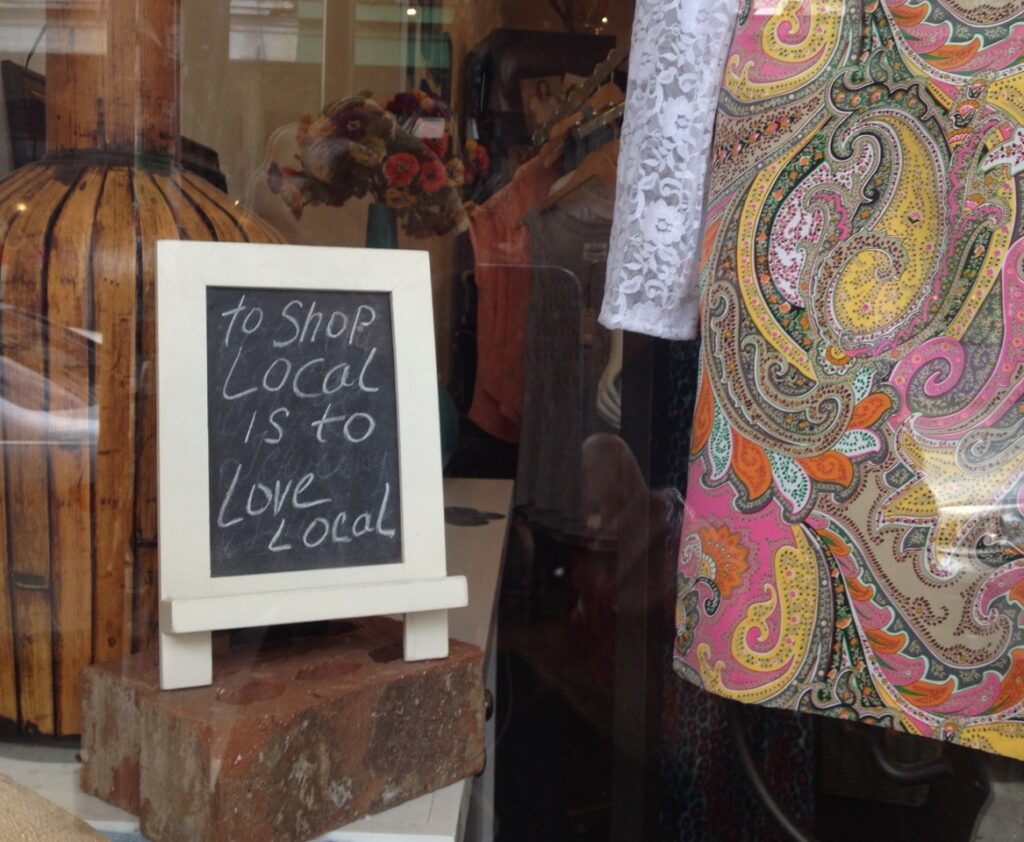 to Shop
Local
is to
Love
Local